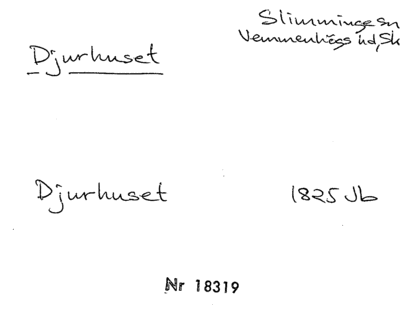 Djurhuset
Slimminge sn
Vemmenhögs hd, Sk
Djurhuset
1825 Jb
Nr 18319